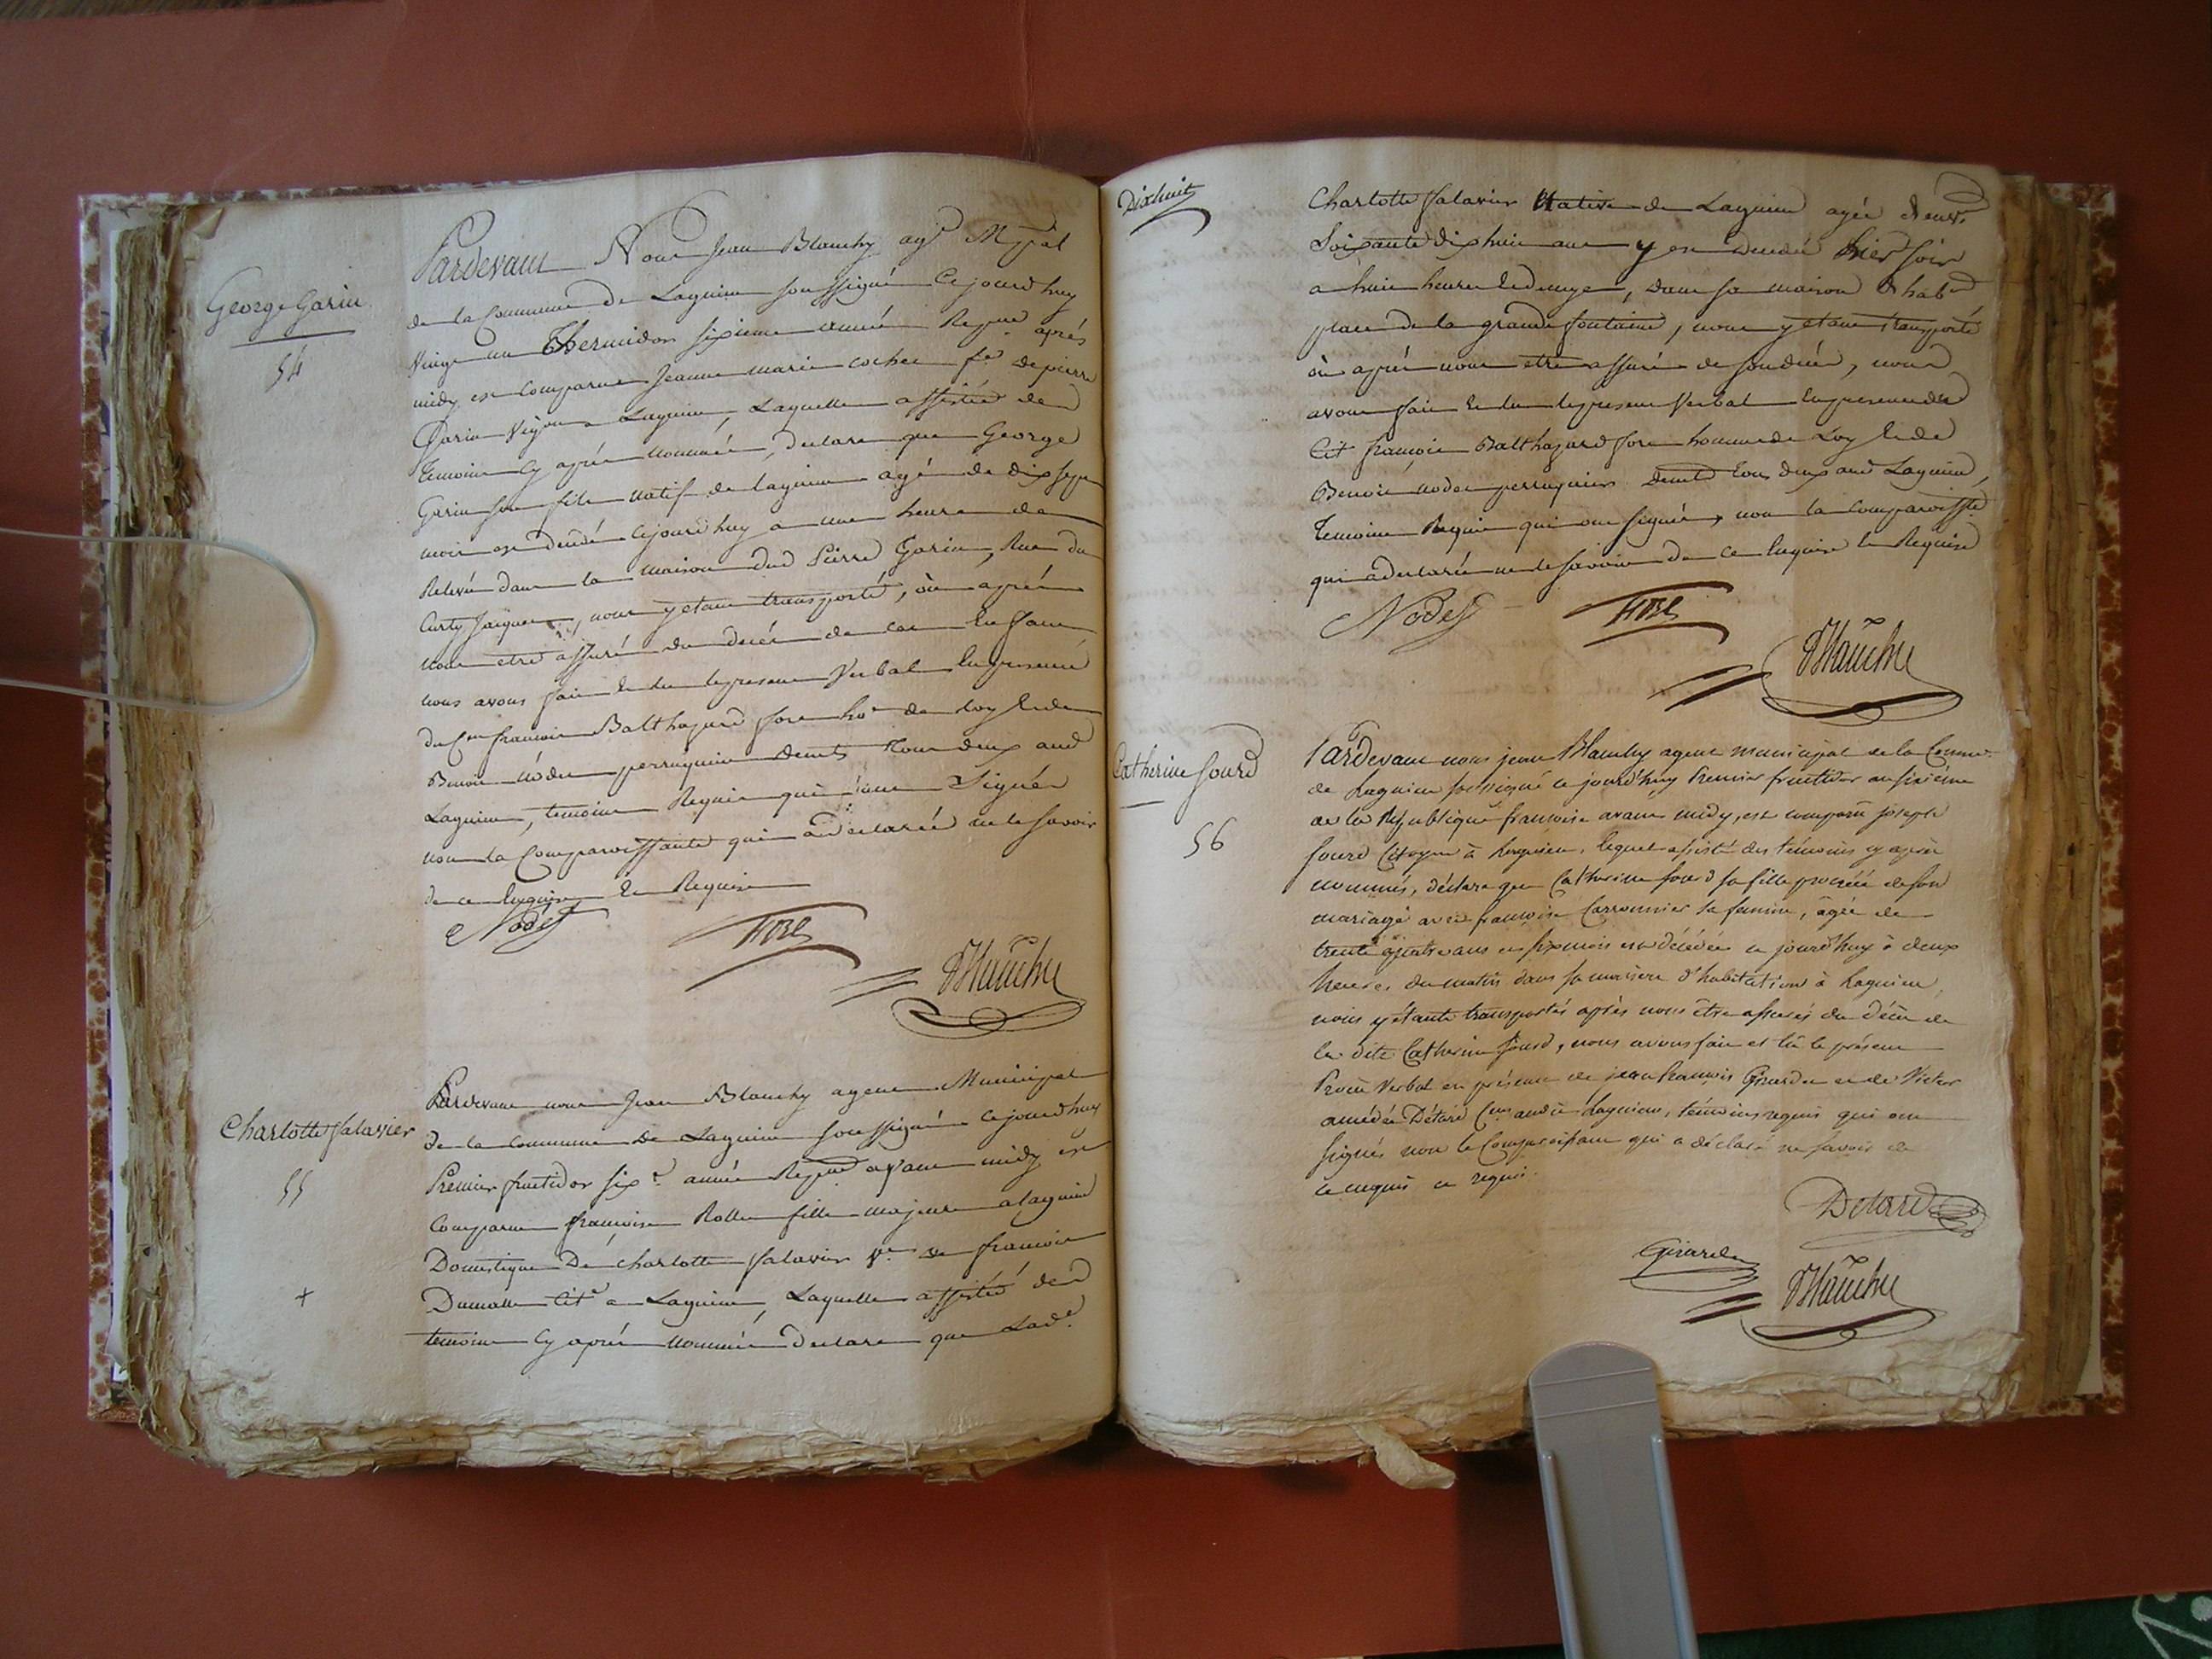 George Garin
54
Pardevant Nous Jean Blanchy agt Mpal
de la Commune de Lagnieu soussigné Cejourdhuy
vingt un Thermidor sixieme année Repne aprés
midy est Comparue Jeanne marie cochet fe de pierre
Garin Vigon a Lagnieu, Laquelle assistée de
temoins Cy aprés nommés, declare que George
Garin son fils natif de lagnieu agé de dix sept
mois est decédé cejourdhuy a une heure de
Relevée dans la maison dud Pierre Garin, Rue du
Curty Jacquem, nous y etant transporté, où aprés
nous etre assuré du decés de cet Enfant
nous avons fait et lu le present Verbal en presence
du Cen francois Balthazard fore he de loy et de
Benoit nodet perruquier demts tous deux aud
Lagnieu, temoins Requis qui ont Signés
non la Comparoissante qui a declarée ne le savoir
de ce Enquise et Requise
Nodet
fore
Blanchy
Charlotte Salavier
55
+
Pardevant nous Jean Blanchy agent Municipal
de la commune de Lagnieu soussigné Cejourdhuy
Premier fructidor sixe année Repne avant midy est
Comparue francoise Rollet fille majeure a lagnieu
Domestique De charlotte Salavier ve de francois
Dumolle Cite a Lagnieu, Laquelle assistée de
temoins Cy aprés nommés declare que Lade
Dixhuit
Charlotte Salavier Native de Lagnieu agée d'env.
Soixante dix huit ans y est decedé hier soir
a huit heures et demye, dans sa maison d'habon
place de la grande fontaine, nous y etant transporté
où aprés nous etre assuré de son decés, nous
avons fait et lu le present Verbal en presence du
Cit francois Balthazard fore homme de Loy et de
Benoit nodet perruquier demts tous deux aud Lagnieu,
Temoins Requis qui ont signés, non la comparoisste
qui a declarée ne le savoir de ce Enquise et Requise
Nodet
fore
Blanchy
Catherine Sourd
56
Pardevant nous jean Blanchy agent municipal de la Comme
de Lagnieu soussigné ce jourd'huy Premier fructidor an sixième
de la République francoise avant midy, est comparu joseph
Sourd Citoyen à Lagnieu, lequel assisté des témoins cy après
nommés, déclare que Catherine Sourd sa fille procréée de son
mariage avec francoise Carronnier sa femme, âgée de
trente quatre ans et six mois est décédée ce jourd'huy à deux
heures du matin dans sa maison d'habitation à Lagnieu,
nous y étant transportés après nous être assurés du décès de
la dite Catherine Sourd, nous avons fait et lû le présent
Procès Verbal en présence de jean françois Girardet et de Victor
amédée Détard Cens audit Lagnieu, témoins requis qui ont
signés non le Comparoissant qui a déclaré ne savoir de
ce enquis et requis.
Detard
Girardet
Blanchy